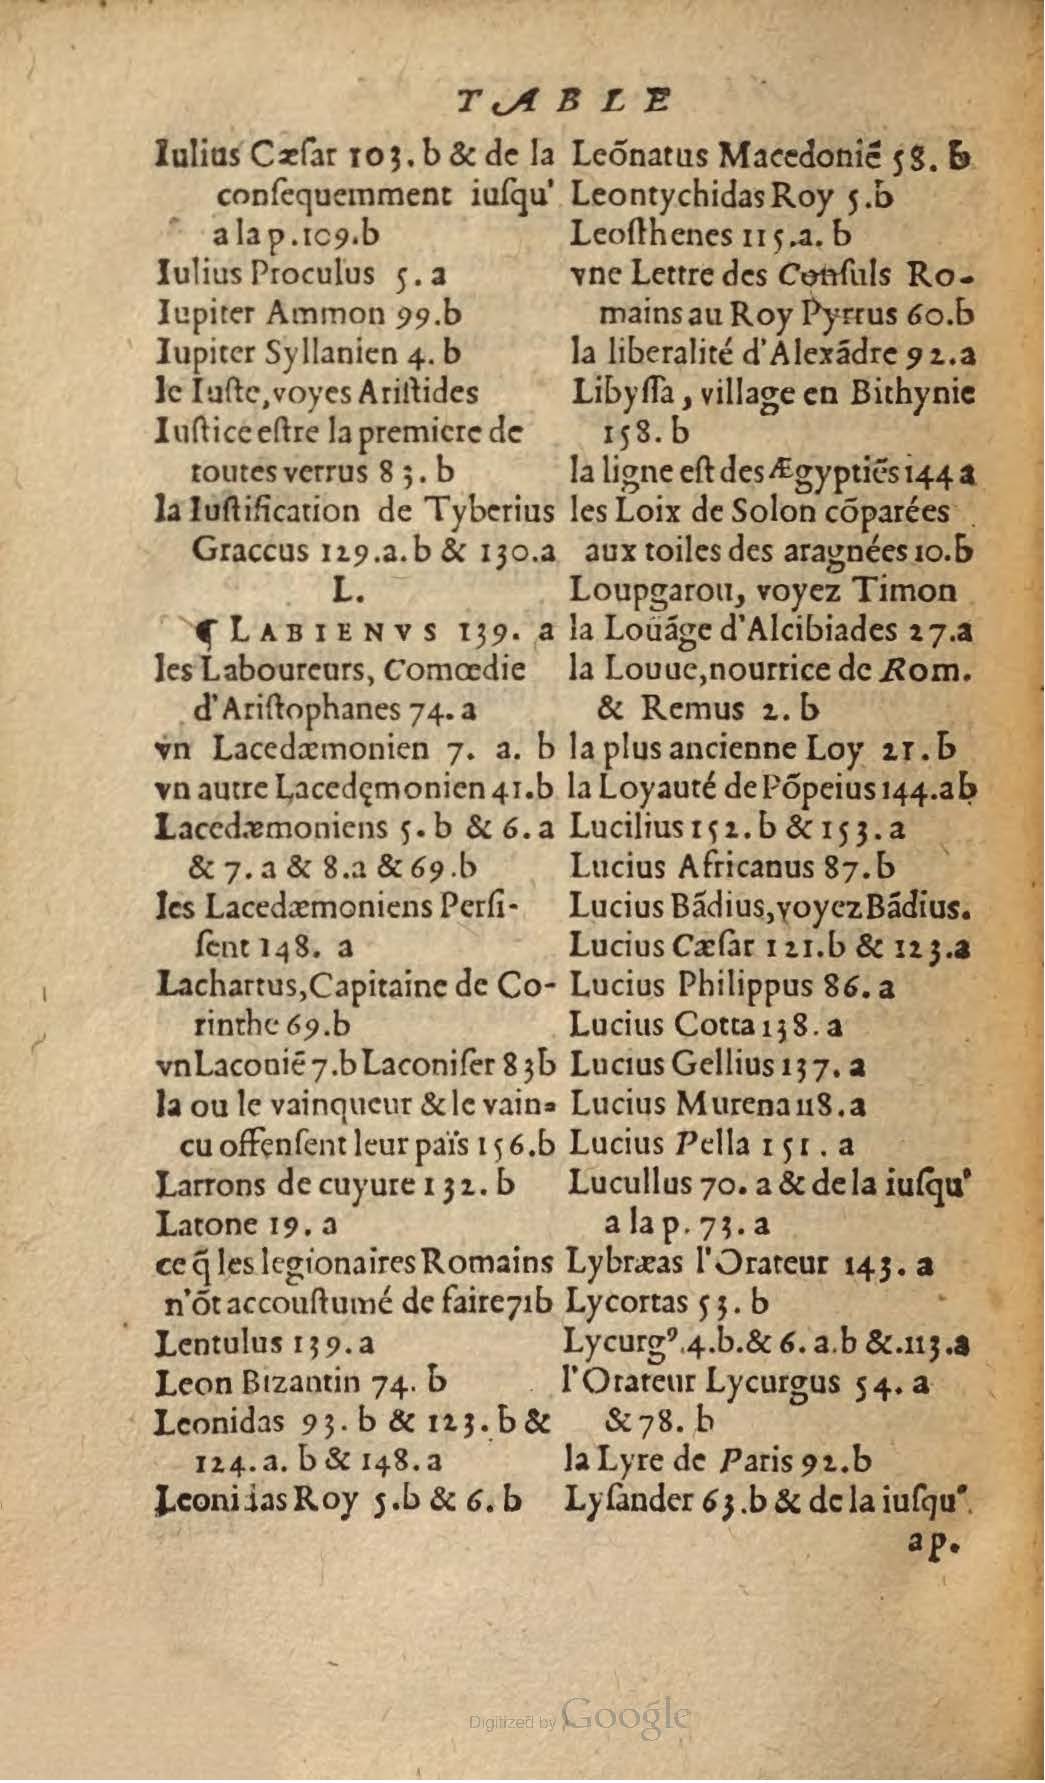 TABLE
Iulius Cæſar 103. b & de la
conſequemment iuſqu'
a la p. 109. b
Iulius Proculus 5. a
Iupiter Ammon 99. b
Iupiter Syllanien 4. b
le Iuſte, voyes Ariſtides
Iuſtice eſtre la premiere de
toutes vertus 83. b
la Iuſtification de Tyberius
Graccus 129. a. b & 130. a
L.
¶ LABIENVS 139. a
les Laboureurs, Comœdie
d'Ariſtophanes 74. a
vn Lacedæmonien 7. a. b
vn autre Lacedęmonien 41. b
Lacedæmoniens 5. b & 6. a
& 7. a & 8. a & 69. b
les Lacedæmoniens Perſi-
ſent 148. a
Lachartus, Capitaine de Co-
rinthe 69. b
vn Laconiē 7. b Laconiſer 83 b
la ou le vainqueur & le vain-
cu offenſent leur païs 156. b
Larrons de cuyure 132. b
Latone 19. a
ce q̃ les legionaires Romains
n'ōt accouſtumé de faire 71 b
Lentulus 139. a
Leon Bizantin 74. b
Leonidas 93. b & 123. b &
124. a. b & 148. a
Leonidas Roy 5. b & 6. b
Leōnatus Macedoniē 58. b
Leontychidas Roy 5. b
Leoſthenes 115. a. b
vne Lettre des Conſuls Ro-
mains au Roy Pyrrus 60. b
la liberalité d'Alexādre 92. a
Libyſſa, village en Bithynie
158. b
la ligne eſt des Ægyptiēs 144 a
les Loix de Solon cōparées
aux toiles des aragnées 10. b
Loupgarou, voyez Timon
la Louāge d'Alcibiades 27. a
la Louue, nourrice de Rom.
& Remus 2. b
la plus ancienne Loy 21. b
la Loyauté de Pōpeius 144. a b
Lucilius 152. b & 153. a
Lucius Africanus 87. b
Lucius Bādius, voyez Bādius.
Lucius Cæſar 121. b & 123. a
Lucius Philippus 86. a
Lucius Cotta 138. a
Lucius Gellius 137. a
Lucius Murena 118. a
Lucius Pella 151. a
Lucullus 70. a & de la iuſqu'
a la p. 73. a
Lybræas l'Orateur 143. a
Lycortas 53. b
Lycurgꝰ. 4. b. & 6. a. b &. 113. a
l'Orateur Lycurgus 54. a
& 78. b
la Lyre de Paris 92. b
Lyſander 63. b & de la iuſqu'
a p.
Digitized by Google